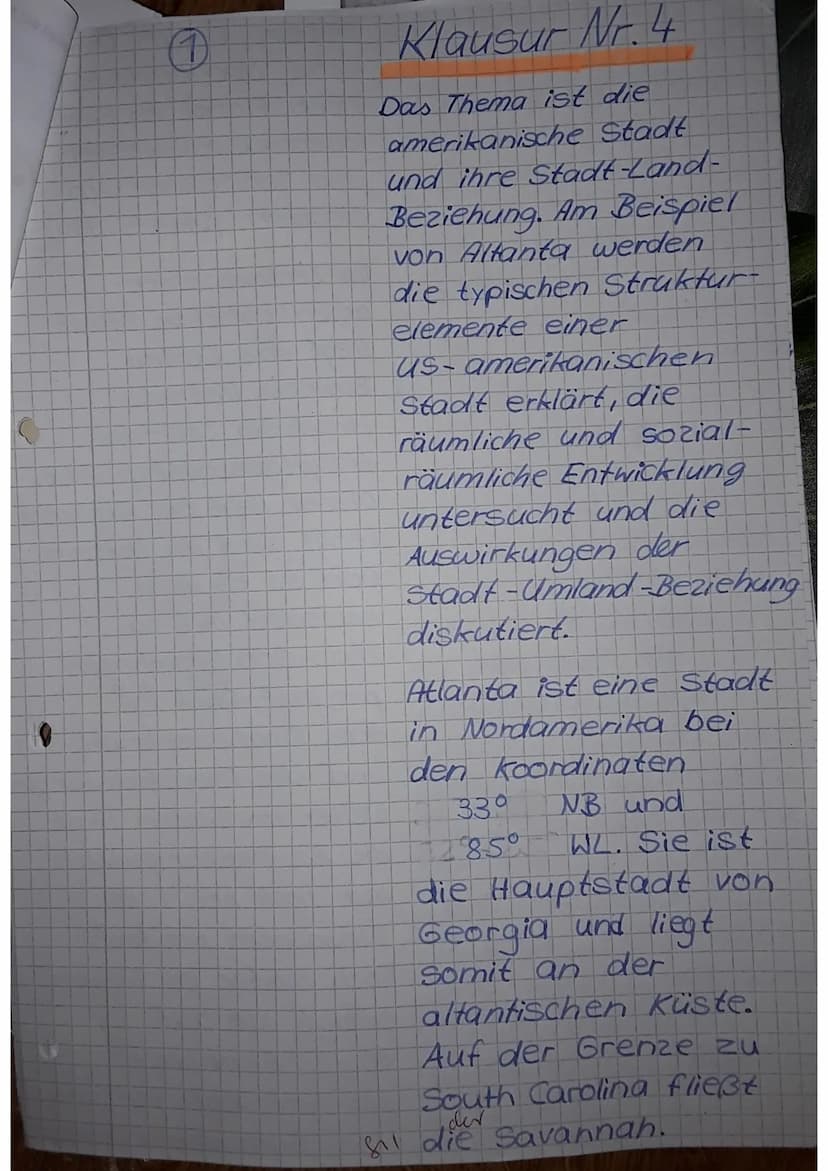 1
Klausur Nr. 4
Das Thema ist die
amerikanische Stadt
und ihre Stadt-Land-
Beziehung. Am Beispiel
von Altanta werden
die typischen Struktur-
elemente einer
us-amerikanischen
Stadt erklärt, die
räumliche und sozial-
räumliche Entwicklung
untersucht und die
Auswirkungen der
Stadt-Umland-Beziehung
diskutiert.
Atlanta ist eine Stadt
in Nordamerika bei
den Koordinaten
33° NB und
85° WL. Sie ist
die Hauptstadt von
Georgia und liegt
somit an der
altantischen Küste.
Auf der Grenze zu
South Carolina fließt
der
die Savannah.